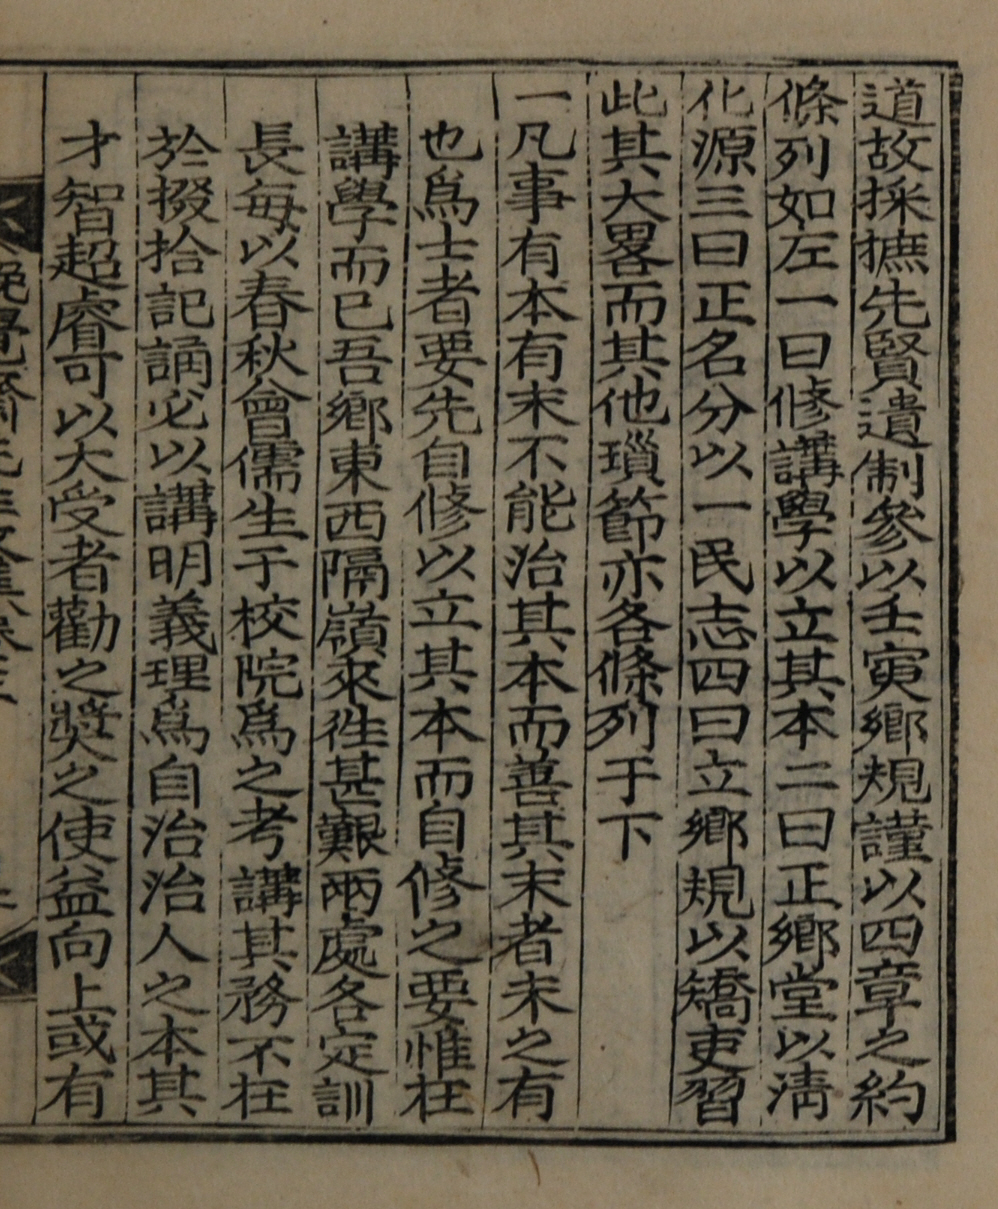 道故採摭先賢遺制參以壬寅鄉規謹以四章之約
條列如左一曰修講學以立其本二曰正鄉堂以淸
化源三曰正名分以一民志四曰立鄉規以矯吏習
此其大畧而其他瑣節亦各條列于下
一凡事有本有末不能治其本而善其末者未之有
也爲士者要先自修以立其本而自修之要惟在
講學而已吾鄉東西隔嶺來徃甚艱兩處各定訓
長每以春秋會儒生于校院爲之考講其務不在
於掇拾記誦必以講明義理爲自治治人之本其
才智超睿可以大受者勸之奬之使益向上或有